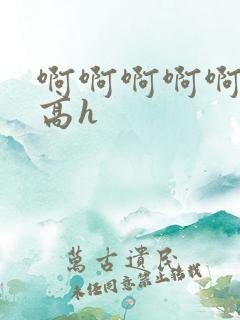 啊啊啊啊啊
高h
萬古遺民
未经同意禁止转载